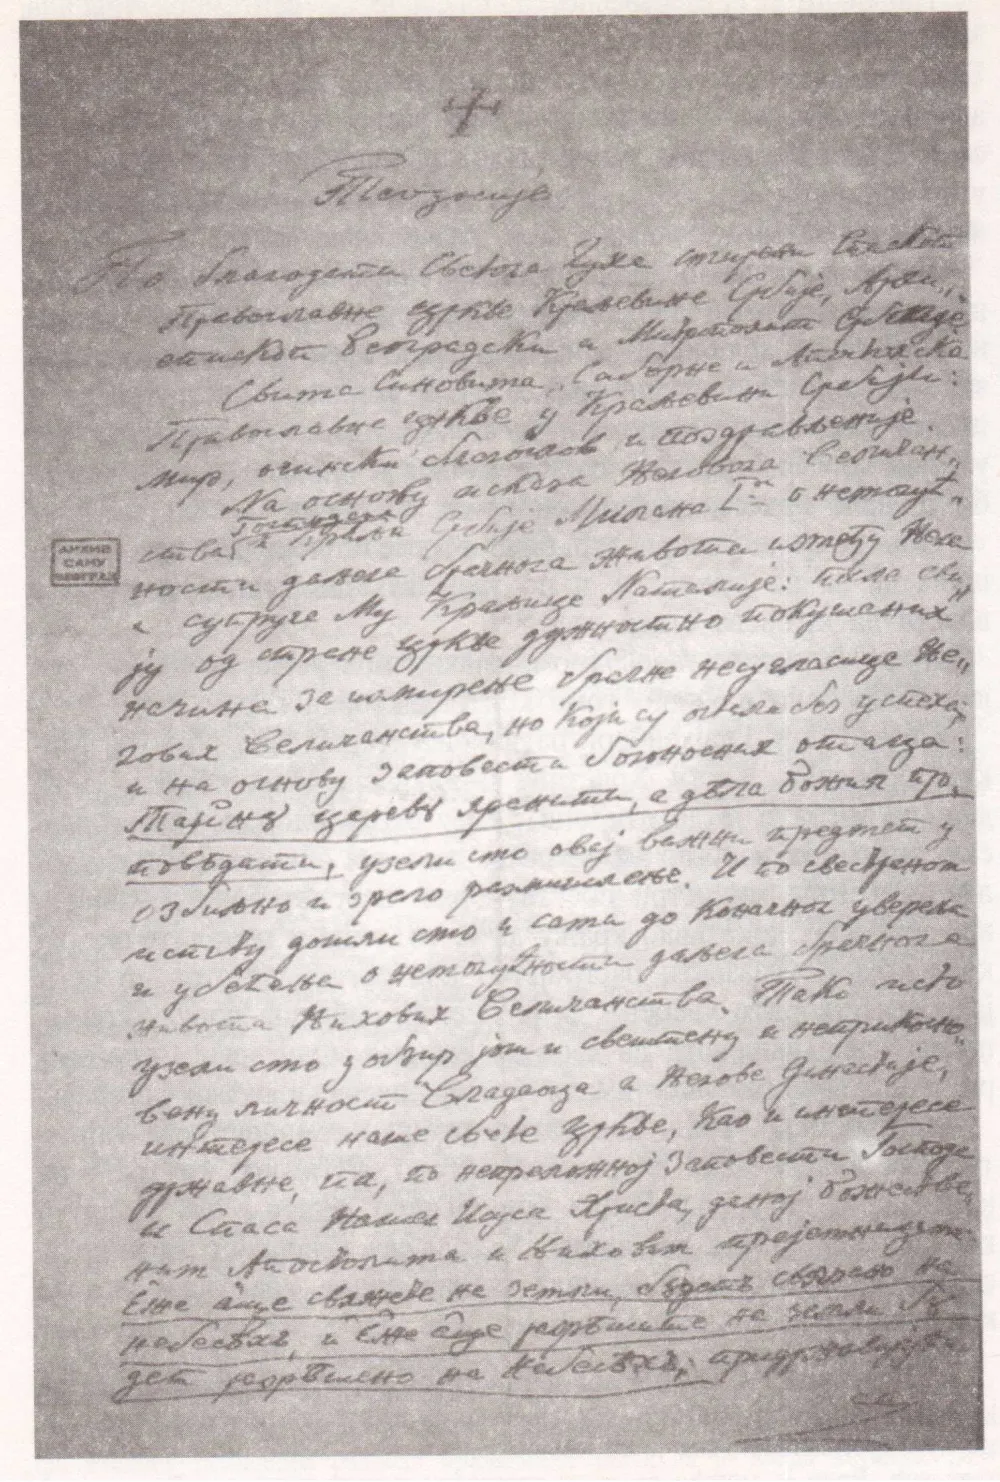 Теодосије
По благодати Светога Духа смирени Епископ
Православне цркве Краљевине Србије, Архи„
епископ Београдски и Митрополит Србије
Свима Синовима, Саборне и Апостолске
Православне цркве у Краљевини Србији:
мир, очински благослов и поздрављеније.
На основу исказа Његовога Величан„
ства Господара и Краља Србије Милана I о немогућ„
ности даљега брачног живота између Њега
и супруге Му Краљице Наталије: после сви„
ју од стране цркве дужностно покушаних
начина за измирење брачне несугласице Ње„
гових Величанства, но који су остали без успеха,
и на основу заповести богоносних отаца:
Тајну цареву хранити, а дѣла Божия про„
повѣдати, узели смо овај важни предмет у
озбиљно и зрело размишљење. И по свестраном
испиту дошли смо и сами до коначног уверења
и убеђења о немогућности даљега брачнога
живота Њихових Величанства. Тако исто
узели смо у обзир још и свештену и неприкосно„
вену личност Владаоца а Његове Династије,
интересе наше свете цркве, као и интересе
државне, па, по непреложној заповести Господа
и Спаса Нашег Исуса Христа, даној божестве„
ним Апостолима и Њиховим пријемницима:
Еже аще свяжете на земли, будетъ связано на
небесѣхъ, и Еже аще разрѣшите на земли бу„
дет разрѣшено на небесѣхъ; придржавајући
АРХИВ
САНУ
БЕОГРАД